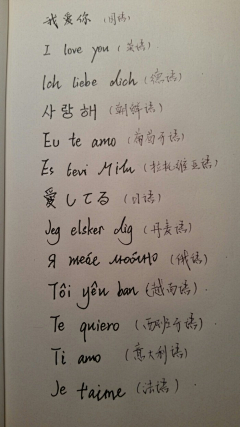 我爱你 (国语)
I love you (英语)
Ich liebe dich (德语)
사랑해 (朝鲜语)
Eu te amo (葡萄牙语)
Es tevi Milu (拉托维亚语)
愛してる (日语)
Jeg elsker dig (丹麦语)
Я тебе люблю (俄语)
Tôi yêu ban (越南语)
Te quiero (西班牙语)
Ti amo (意大利语)
Je t'aime (法语)